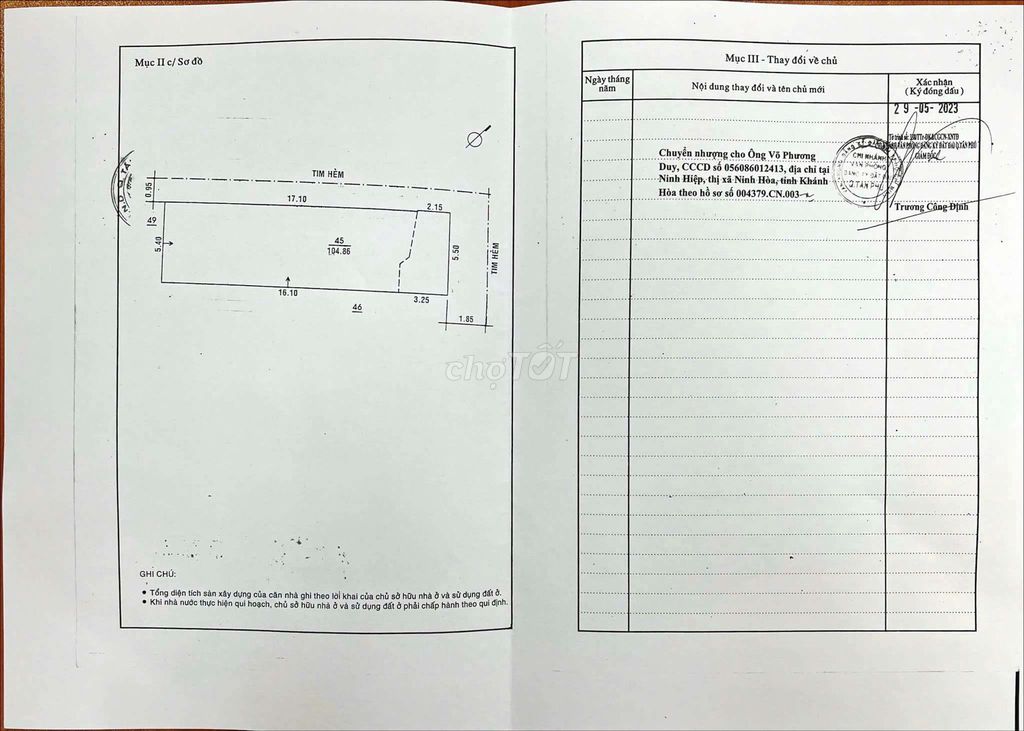 Mục II c/ Sơ đồ
TIM HẺM
0.95
17.10
2.15
49
5.40
45
104.86
5.50
TIM HẺM
16.10
3.25
46
1.85
GHI CHÚ:
• Tổng diện tích sàn xây dựng của căn nhà ghi theo lời khai của chủ sở hữu nhà ở và sử dụng đất ở.
• Khi nhà nước thực hiện qui hoạch, chủ sở hữu nhà ở và sử dụng đất ở phải chấp hành theo qui định.
Mục III - Thay đổi về chủ
Ngày tháng năm
Nội dung thay đổi và tên chủ mới
Xác nhận
( Ký đóng dấu )
29-05-2023
GIÁM ĐỐC
CHI NHÁNH
VĂN PHÒNG
ĐĂNG KÝ ĐẤT
Q.TÂN PHÚ
Chuyển nhượng cho Ông Võ Phương
Duy, CCCD số 056086012413, địa chỉ tại
Ninh Hiệp, thị xã Ninh Hòa, tỉnh Khánh
Hòa theo hồ sơ số 004379.CN.003
Trương Công Định
chợTỐT